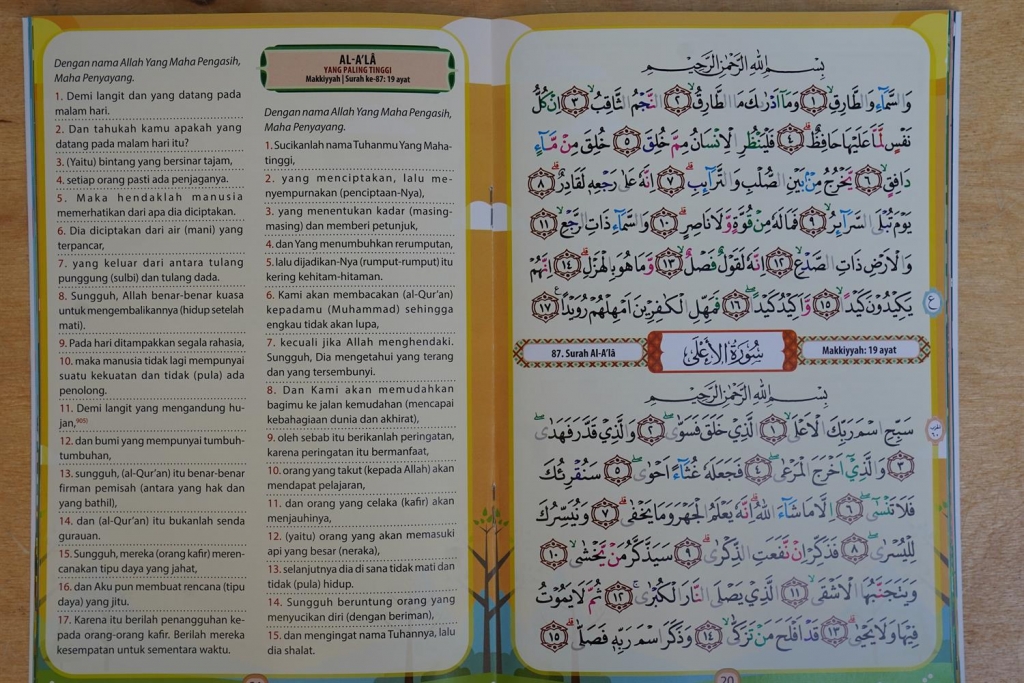 Dengan nama Allah Yang Maha Pengasih,
Maha Penyayang.
1. Demi langit dan yang datang pada
malam hari.
2. Dan tahukah kamu apakah yang
datang pada malam hari itu?
3. (Yaitu) bintang yang bersinar tajam,
4. setiap orang pasti ada penjaganya.
5. Maka hendaklah manusia
memerhatikan dari apa dia diciptakan.
6. Dia diciptakan dari air (mani) yang
terpancar,
7. yang keluar dari antara tulang
punggung (sulbi) dan tulang dada.
8. Sungguh, Allah benar-benar kuasa
untuk mengembalikannya (hidup setelah
mati).
9. Pada hari ditampakkan segala rahasia,
10. maka manusia tidak lagi mempunyai
suatu kekuatan dan tidak (pula) ada
penolong.
11. Demi langit yang mengandung hu-
jan,⁹⁰⁵⁾
12. dan bumi yang mempunyai tumbuh-
tumbuhan,
13. sungguh, (al-Qur'an) itu benar-benar
firman pemisah (antara yang hak dan
yang bathil),
14. dan (al-Qur'an) itu bukanlah senda
gurauan.
15. Sungguh, mereka (orang kafir) meren-
canakan tipu daya yang jahat,
16. dan Aku pun membuat rencana (tipu
daya) yang jitu.
17. Karena itu berilah penangguhan ke-
pada orang-orang kafir. Berilah mereka
kesempatan untuk sementara waktu.
AL-A'LÂ
YANG PALING TINGGI
Makkiyyah | Surah ke-87: 19 ayat
Dengan nama Allah Yang Maha Pengasih,
Maha Penyayang.
1. Sucikanlah nama Tuhanmu Yang Maha-
tinggi,
2. yang menciptakan, lalu me-
nyempurnakan (penciptaan-Nya),
3. yang menentukan kadar (masing-
masing) dan memberi petunjuk,
4. dan Yang menumbuhkan rerumputan,
5. lalu dijadikan-Nya (rumput-rumput) itu
kering kehitam-hitaman.
6. Kami akan membacakan (al-Qur'an)
kepadamu (Muhammad) sehingga
engkau tidak akan lupa,
7. kecuali jika Allah menghendaki.
Sungguh, Dia mengetahui yang terang
dan yang tersembunyi.
8. Dan Kami akan memudahkan
bagimu ke jalan kemudahan (mencapai
kebahagiaan dunia dan akhirat),
9. oleh sebab itu berikanlah peringatan,
karena peringatan itu bermanfaat,
10. orang yang takut (kepada Allah) akan
mendapat pelajaran,
11. dan orang yang celaka (kafir) akan
menjauhinya,
12. (yaitu) orang yang akan memasuki
api yang besar (neraka),
13. selanjutnya dia di sana tidak mati dan
tidak (pula) hidup.
14. Sungguh beruntung orang yang
menyucikan diri (dengan beriman),
15. dan mengingat nama Tuhannya, lalu
dia shalat.
بِسْمِ اللّٰهِ الرَّحْمٰنِ الرَّحِيْمِ
وَالسَّمَاۤءِ وَالطَّارِقِۙ ١ وَمَآ اَدْرٰىكَ مَا الطَّارِقُۙ ٢ النَّجْمُ الثَّاقِبُۙ ٣ اِنْ كُلُّ
نَفْسٍ لَّمَّا عَلَيْهَا حَافِظٌۗ ٤ فَلْيَنْظُرِ الْاِنْسَانُ مِمَّ خُلِقَ ٥ خُلِقَ مِنْ مَّاۤءٍ
دَافِقٍۙ ٦ يَّخْرُجُ مِنْۢ بَيْنِ الصُّلْبِ وَالتَّرَاۤىِٕبِۗ ٧ اِنَّهٗ عَلٰى رَجْعِهٖ لَقَادِرٌۗ ٨
يَوْمَ تُبْلَى السَّرَاۤىِٕرُۙ ٩ فَمَا لَهٗ مِنْ قُوَّةٍ وَّلَا نَاصِرٍۗ ١٠ وَالسَّمَاۤءِ ذَاتِ الرَّجْعِۙ ١١
وَالْاَرْضِ ذَاتِ الصَّدْعِۙ ١٢ اِنَّهٗ لَقَوْلٌ فَصْلٌۙ ١٣ وَّمَا هُوَ بِالْهَزْلِۗ ١٤ اِنَّهُمْ
يَكِيْدُوْنَ كَيْدًاۙ ١٥ وَّاَكِيْدُ كَيْدًاۖ ١٦ فَمَهِّلِ الْكٰفِرِيْنَ اَمْهِلْهُمْ رُوَيْدًاࣖ ١٧
ع
87. Surah Al-A'lâ
سُوْرَةُ الْاَعْلٰى
Makkiyyah: 19 ayat
بِسْمِ اللّٰهِ الرَّحْمٰنِ الرَّحِيْمِ
سَبِّحِ اسْمَ رَبِّكَ الْاَعْلَىۙ ١ الَّذِيْ خَلَقَ فَسَوّٰىۖ ٢ وَالَّذِيْ قَدَّرَ فَهَدٰىۖ
٣ وَالَّذِيْٓ اَخْرَجَ الْمَرْعٰىۖ ٤ فَجَعَلَهٗ غُثَاۤءً اَحْوٰىۖ ٥ سَنُقْرِئُكَ
فَلَا تَنْسٰىٓۖ ٦ اِلَّا مَا شَاۤءَ اللّٰهُۗ اِنَّهٗ يَعْلَمُ الْجَهْرَ وَمَا يَخْفٰىۗ ٧ وَنُيَسِّرُكَ
لِلْيُسْرٰىۖ ٨ فَذَكِّرْ اِنْ نَّفَعَتِ الذِّكْرٰىۗ ٩ سَيَذَّكَّرُ مَنْ يَّخْشٰىۙ ١٠
وَيَتَجَنَّبُهَا الْاَشْقَىۙ ١١ الَّذِيْ يَصْلَى النَّارَ الْكُبْرٰىۚ ١٢ ثُمَّ لَا يَمُوْتُ
فِيْهَا وَلَا يَحْيٰىۗ ١٣ قَدْ اَفْلَحَ مَنْ تَزَكّٰىۙ ١٤ وَذَكَرَ اسْمَ رَبِّهٖ فَصَلّٰىۗ ١٥
20